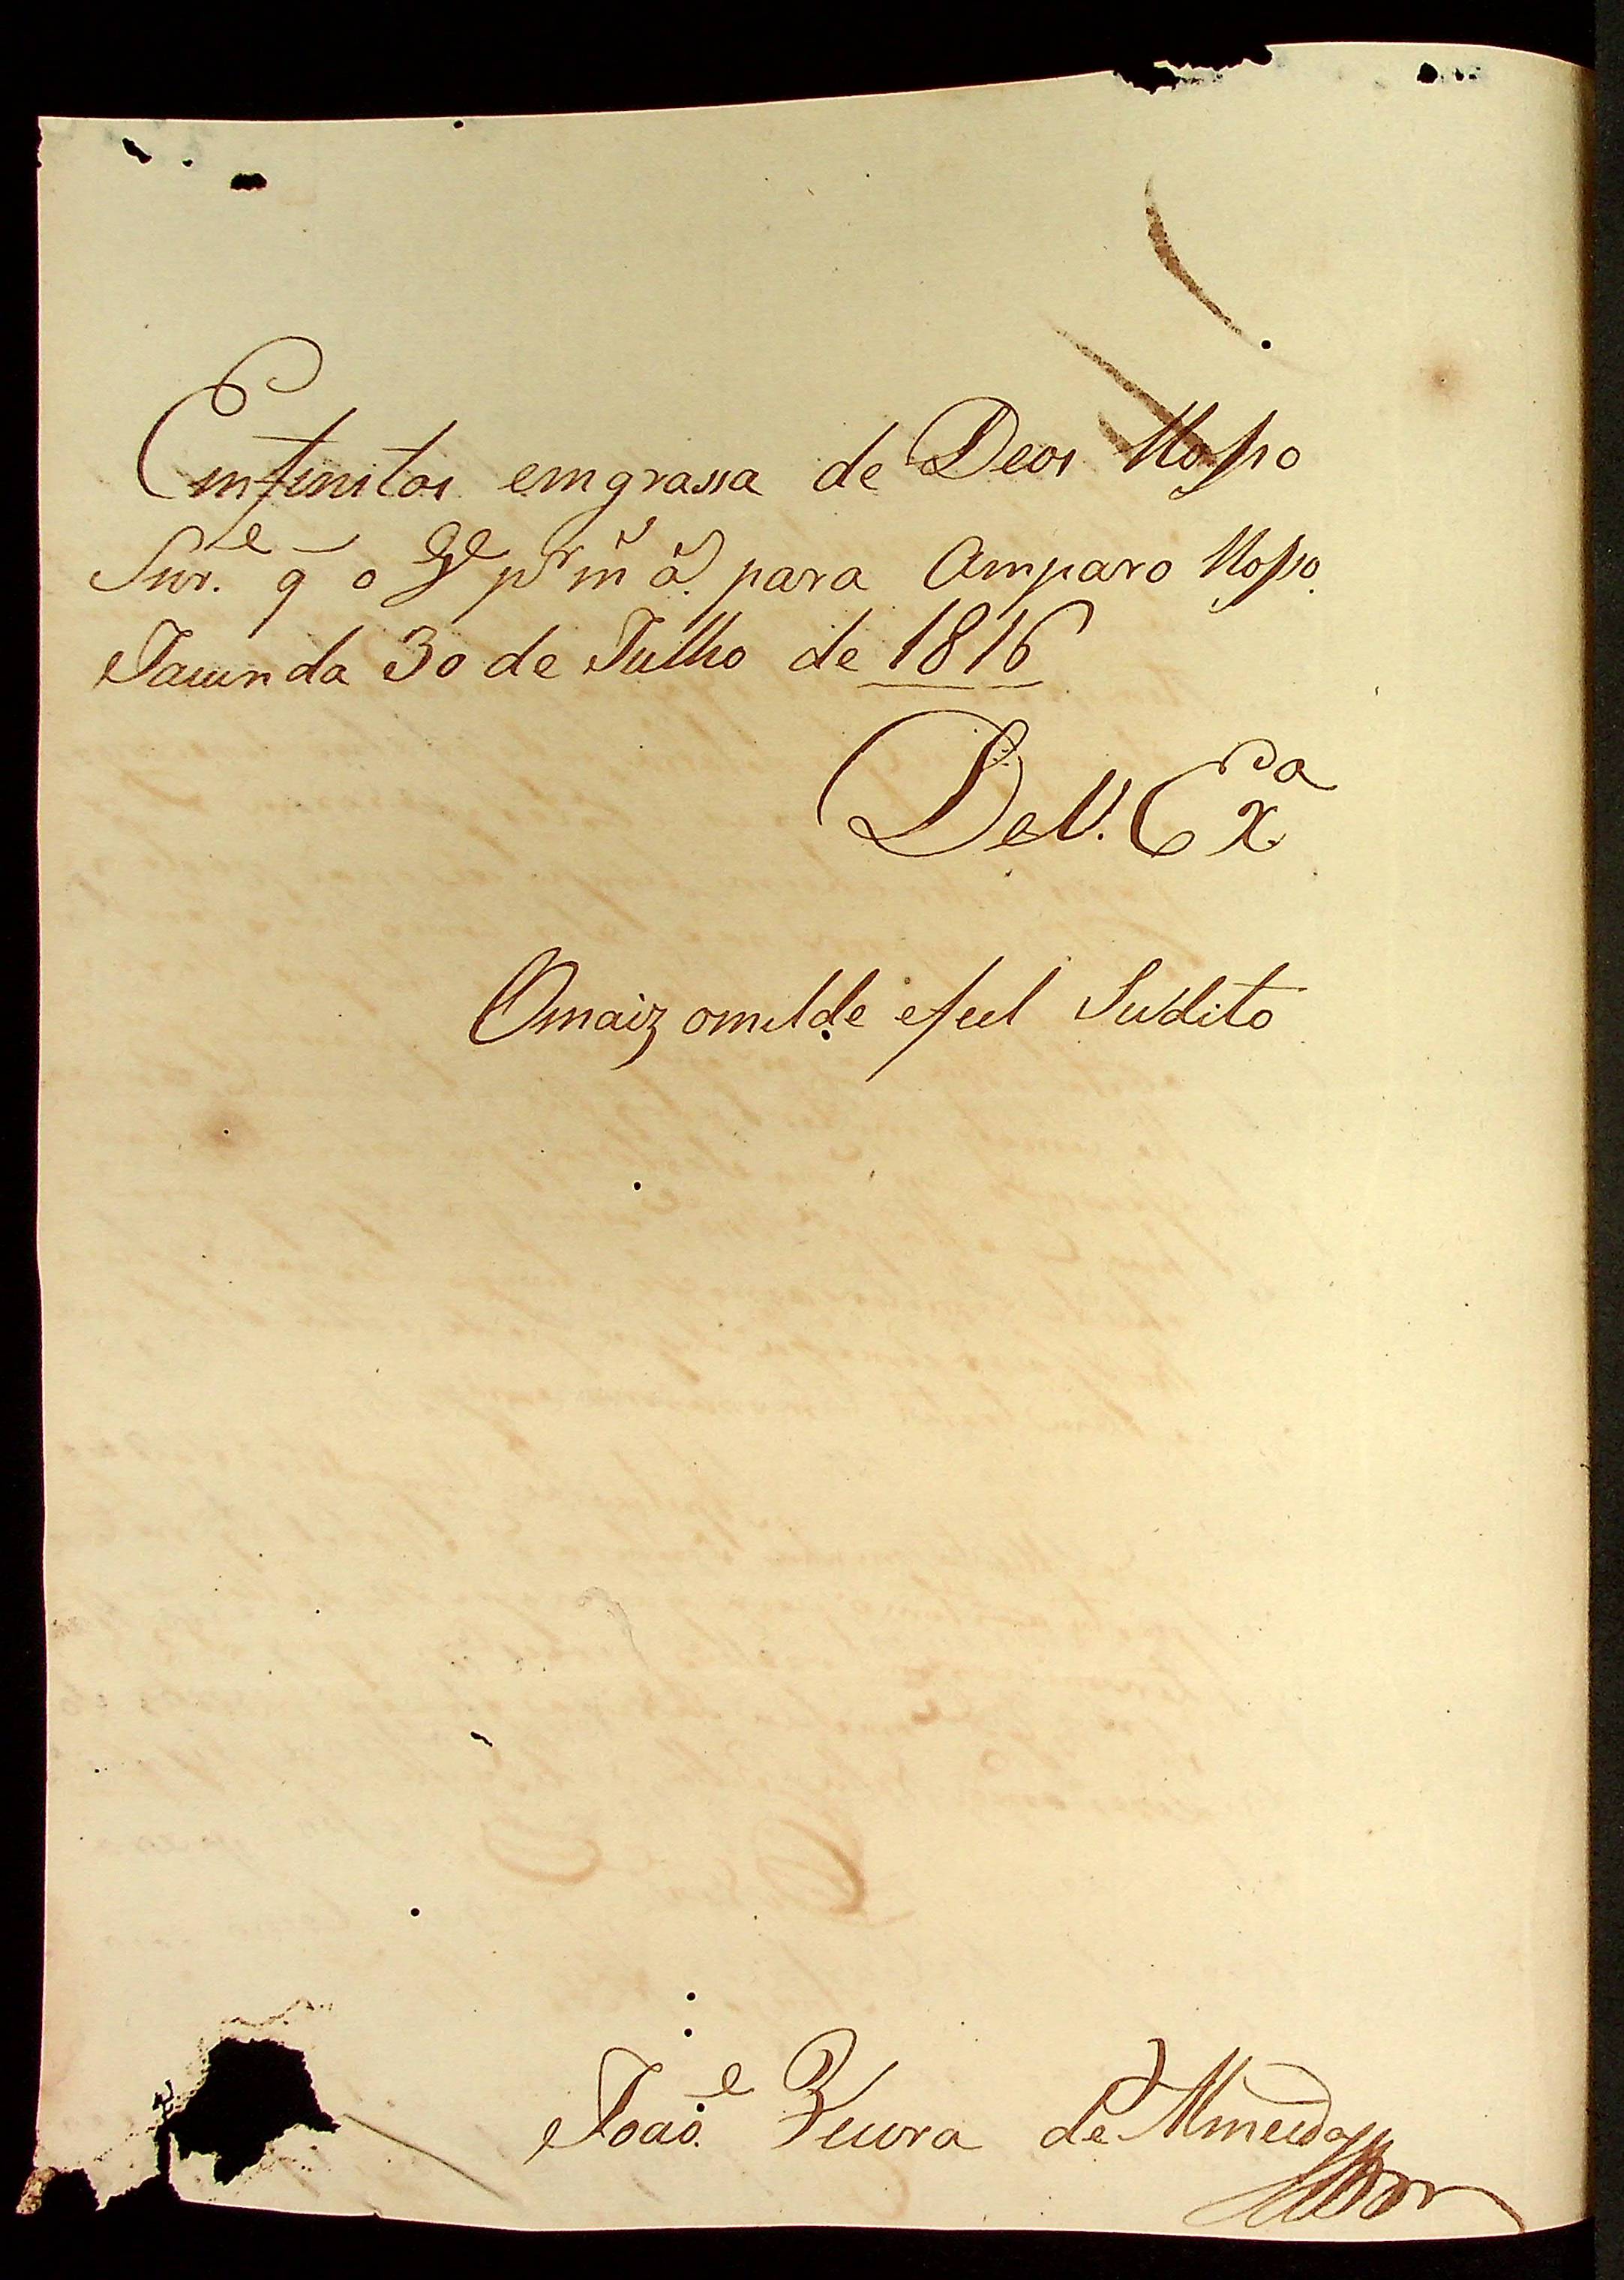 Emfinitos emgrassa de Deos Nosso
Snr.e q̃ o G.e p.r m.s a.s para Amparo Nosso.
Jacunda 30 de Julho de 1816
De V. Ex.a
Omaiz omilde efiel Subdito
João Vieira de Almeida